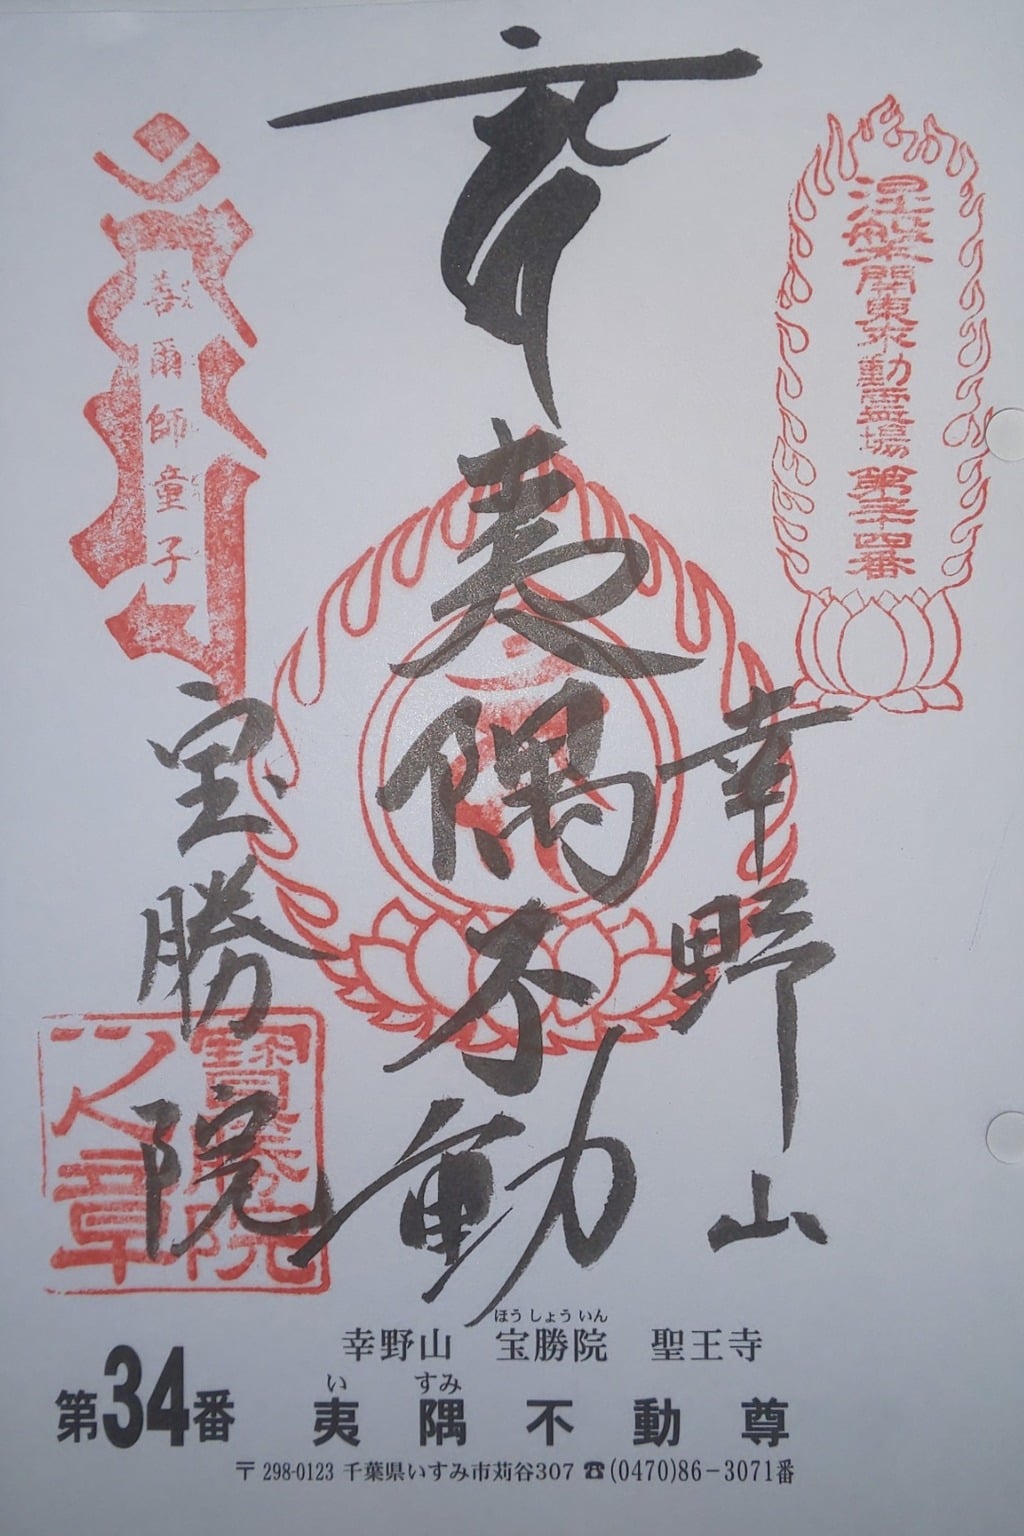 涅槃関東不動霊場 第三十四番
幸野山
夷隅不動
善爾師童子
宝勝院
寶勝院
之章
幸野山 宝勝院 聖王寺
ほうしょういん
第34番 夷隅不動尊
い すみ
〒298-0123 千葉県いすみ市苅谷307 ☎(0470)86-3071番